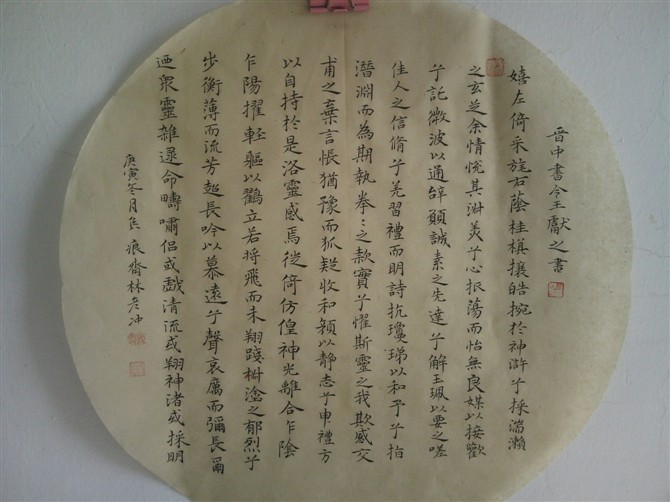 晉中書令王獻之書
嬉左倚采旄右蔭桂旗攘皓捥於神滸兮採湍瀨
之玄芝余情悅其淑美兮心振蕩而怡無良媒以接歡
兮託微波以通辭願誠素之先達兮解玉珮以要之嗟
佳人之信脩兮羌習禮而明詩抗瓊珶以和予兮指
潛淵而為期執拳〻之款實兮懼斯靈之我欺感交
甫之棄言悵猶豫而狐疑收和顏以靜志兮申禮方
以自持於是洛靈感焉徙倚仿偟神光離合乍陰
乍陽擢輕軀以鶴立若將飛而未翔踐椒塗之郁烈兮
步衡薄而流芳超長吟以慕遠兮聲哀厲而彌長爾
迺衆靈雜遝命疇嘯侶或戲清流或翔神渚或採明
庚寅冬月 痕齋林冲